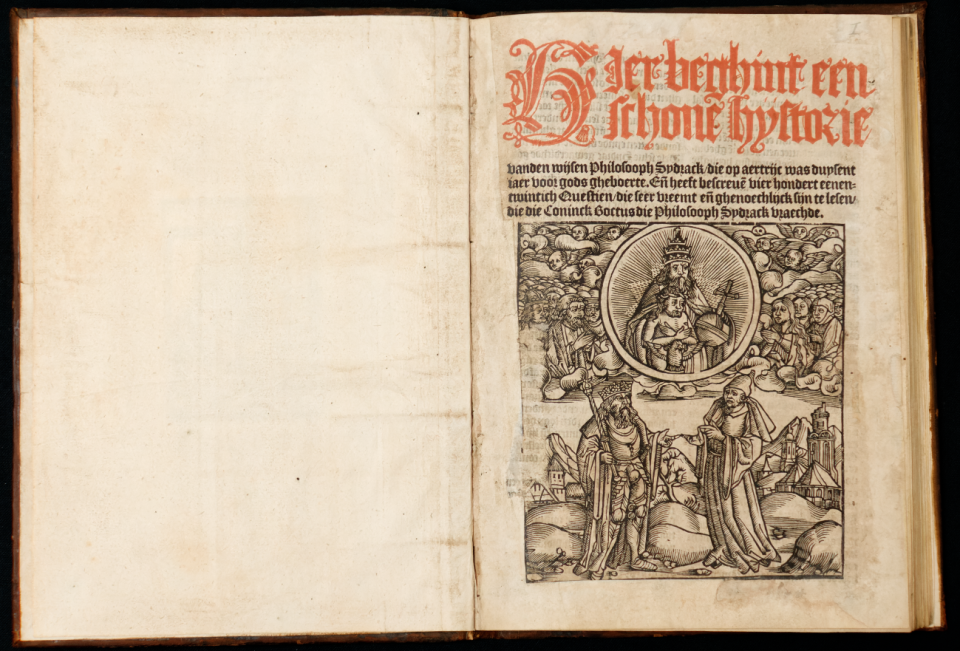 Hier beghint een
schonē hystorie
vanden wijsen Philosooph Sydrack/die op aertrijc was duysent
iaer voor gods gheboerte. Eñ heeft bescreuē vier hondert eenen-
twintich Questien/die seer vreemt eñ ghenoechlijck sijn te lesen/
die die Coninck Boctus die Philosooph Sydrack vraechde.